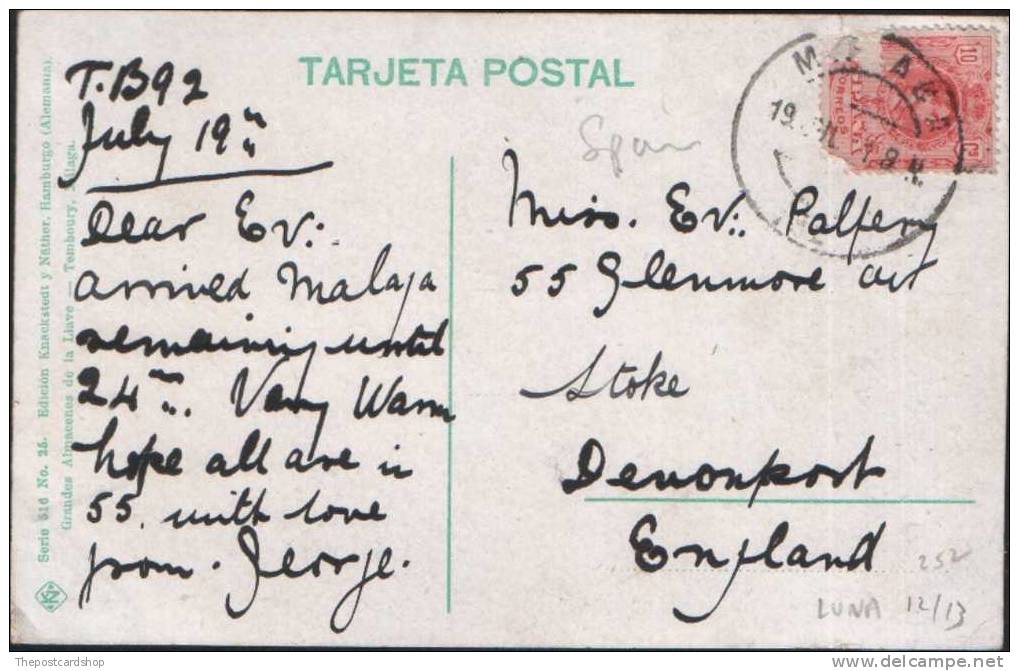 TARJETA POSTAL
T.B92
July 19th
Dear Ev:
arrived Malaga
remaining until
24th. Very Warm
hope all are in
55. with love
from. George.
Spain
Miss. Ev:. Palfery
55 Glenmore
Stoke
Devonport
England
252
LUNA 12/13
10
CORREOS
19
Serie 516 No. 25. Edición Knackstedt y Näther, Hamburgo (Alemania).
Grandes Almacenes de la Llave — Temboury, Málaga.
Thepostcardshop
delcampe.net